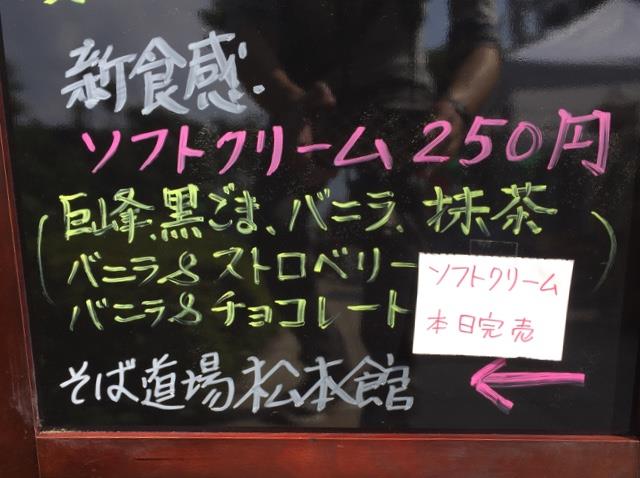 新食感.
ソフトクリーム 250円
(巨峰、黒ごま、バニラ、抹茶
バニラ&ストロベリー
バニラ&チョコレート)
ソフトクリーム
本日完売
そば道場松本館 ←